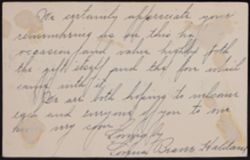 We certainly appreciate your
remembering us on this
occasion and value highly both
the gift itself and the love which
came with it.
We are both hoping to welcome
each and everyone of you to our
home very soon.
Lovingly